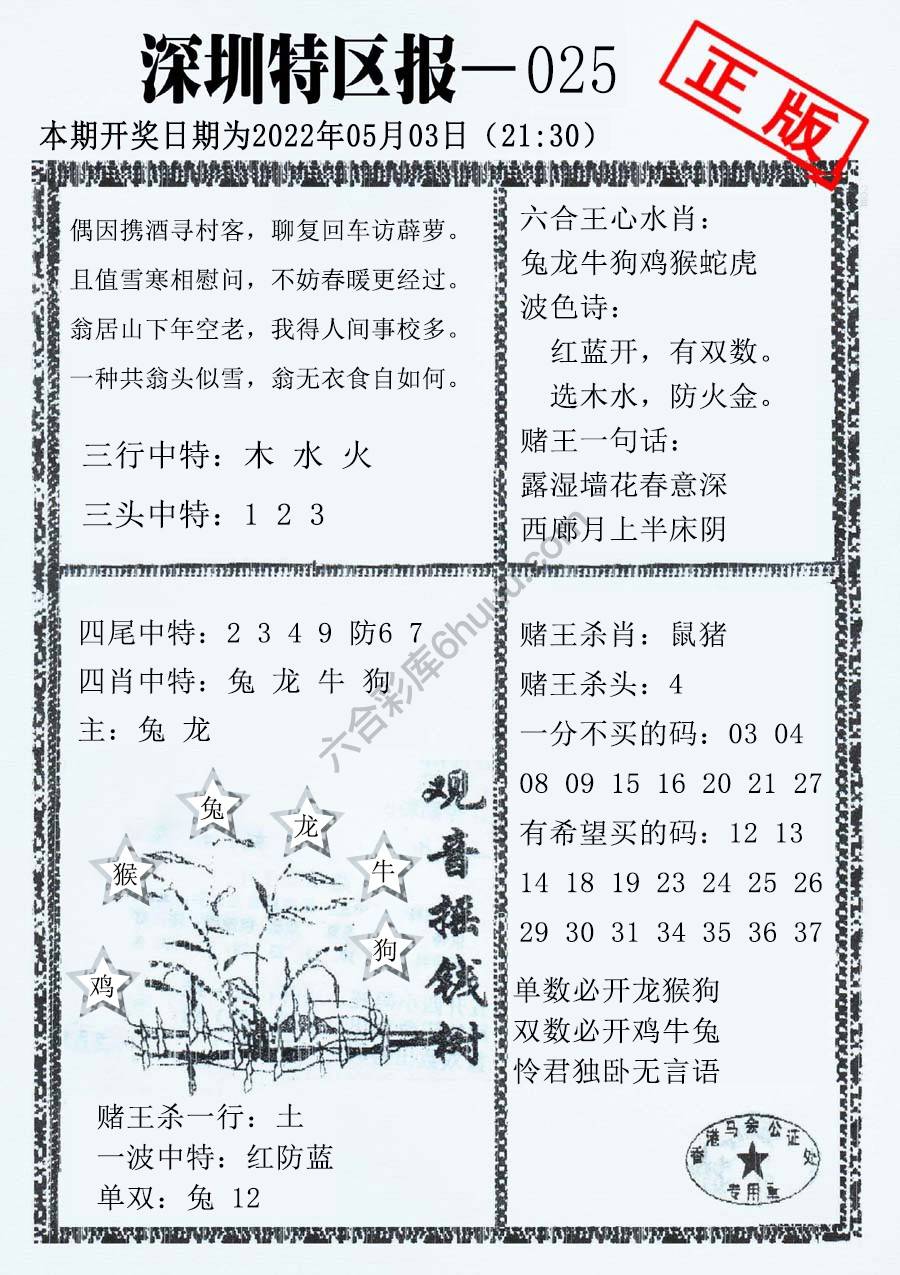 深圳特区报—025
正版
本期开奖日期为2022年05月03日（21:30）
偶因携酒寻村客，聊复回车访薜萝。
且值雪寒相慰问，不妨春暖更经过。
翁居山下年空老，我得人间事校多。
一种共翁头似雪，翁无衣食自如何。
三行中特：木 水 火
三头中特：1 2 3
六合王心水肖：
兔龙牛狗鸡猴蛇虎
波色诗：
红蓝开，有双数。
选木水，防火金。
赌王一句话：
露湿墙花春意深
西廊月上半床阴
四尾中特：2 3 4 9 防6 7
四肖中特：兔 龙 牛 狗
主：兔 龙
兔
龙
猴
牛
狗
鸡
观音摇钱树
赌王杀一行：土
一波中特：红防蓝
单双：兔 12
赌王杀肖：鼠猪
赌王杀头：4
一分不买的码：03 04
08 09 15 16 20 21 27
有希望买的码：12 13
14 18 19 23 24 25 26
29 30 31 34 35 36 37
单数必开龙猴狗
双数必开鸡牛兔
怜君独卧无言语
香港马会公证处
专用章
六合彩库6huuu.com